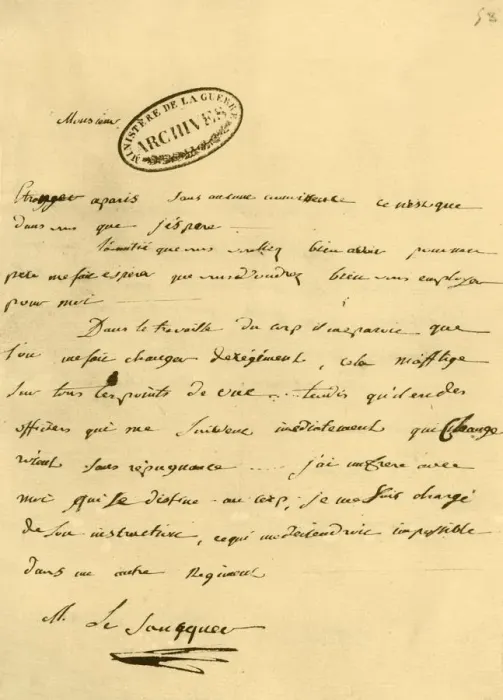 52
MINISTÈRE DE LA GUERRE
ARCHIVES
Monsieur
Etranger a paris sans aucune ce nest que
dans vous que j'espere
l'amitié que vous bien avoir pour mon
pere me fait esperer que vous voudrez bien vous employer
pour moi
Dans le travaille du corp il me que
l'on me fait changer de regiment, cela m'afflige
sur tous les points de vue . . . tandis qu'il en des
officiers qui me suivent que change
sans repugnance . . . . . j'ai un frere avec
moi qui se distine au corp, je me suis chargé
de son instruction, ce qui me deviendroit impossible
dans un autre Regiment
M. Le